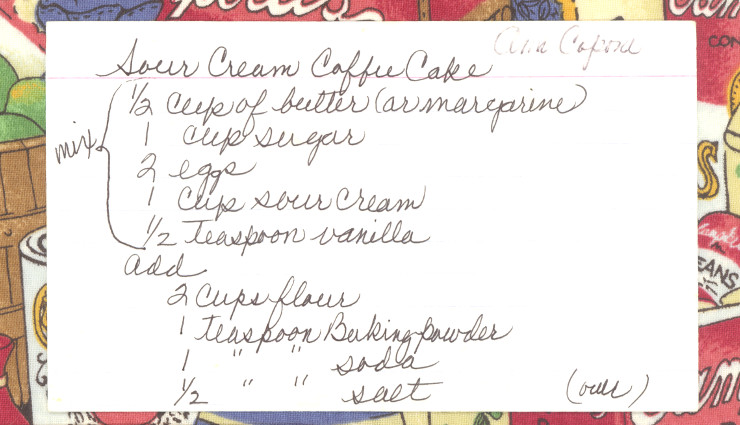 Ana Capone
Sour Cream Coffee Cake
1/2 cup of butter (or margarine)
1 cup sugar
mix
2 eggs
1 cup sour cream
1/2 teaspoon vanilla
add
2 cups flour
1 teaspoon Baking powder
1 " " soda
1/2 " " salt (over)
CON
S
EANS